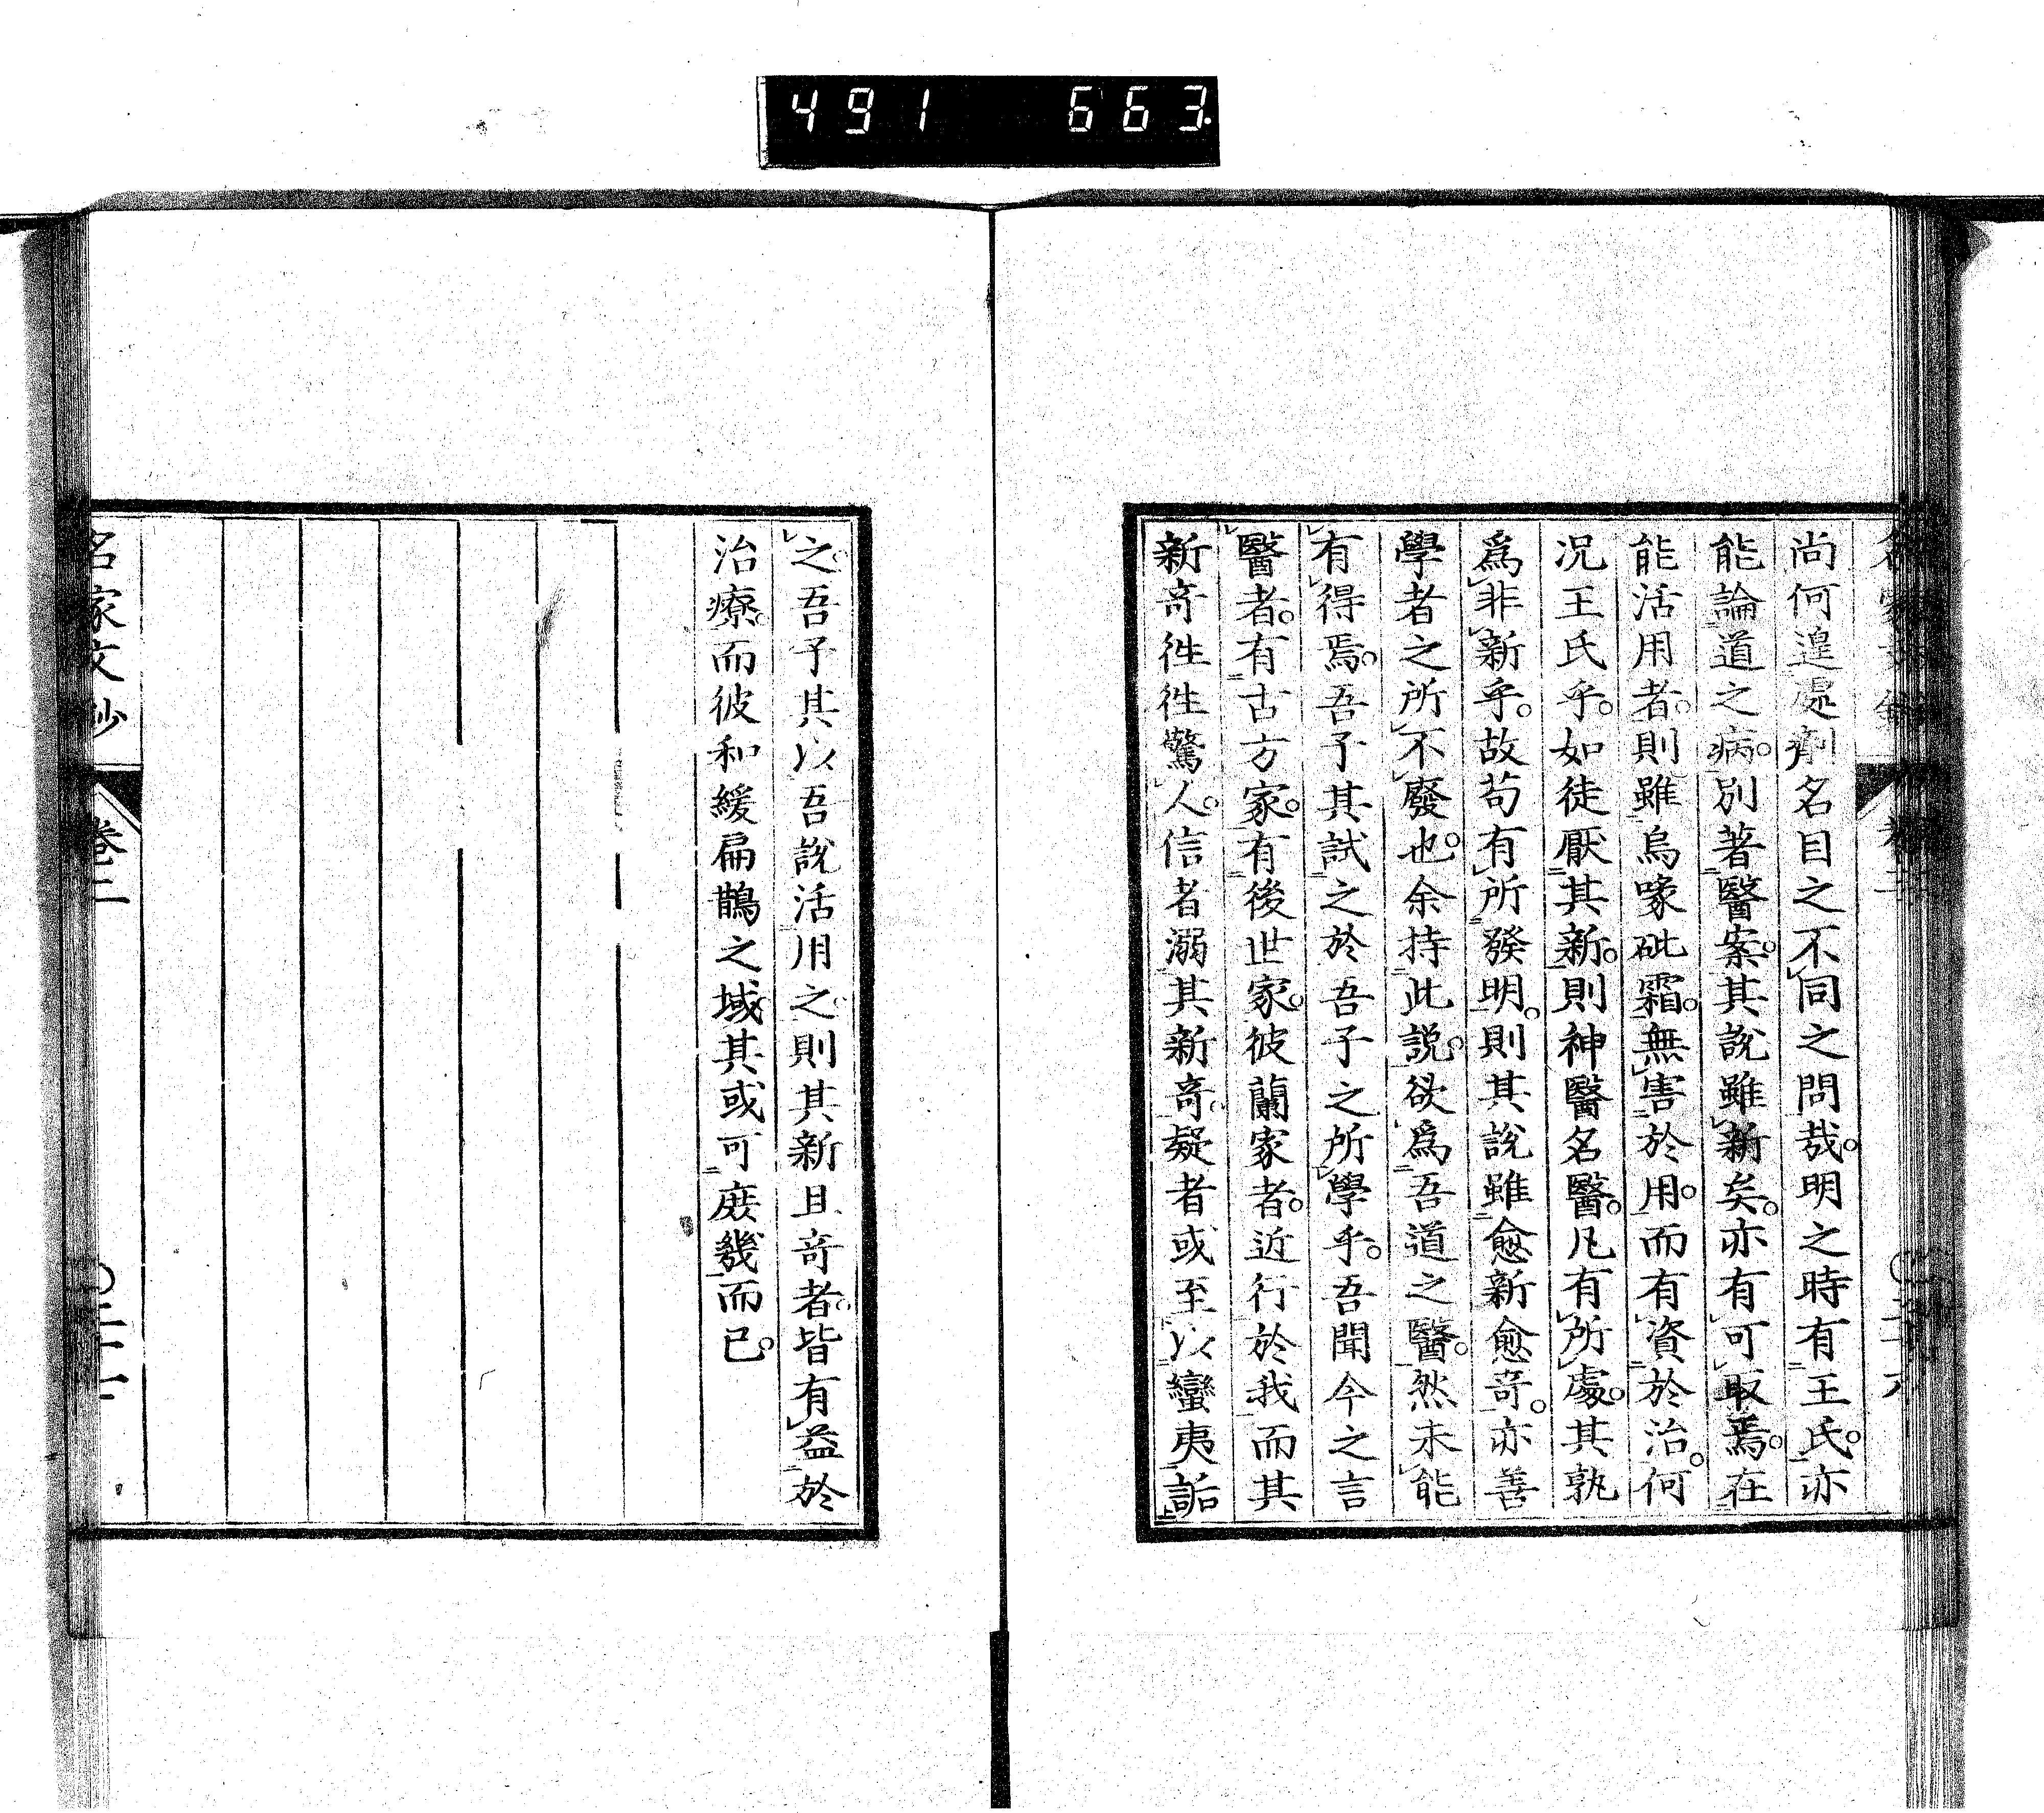 491 663
尚何遑處劑名目之不同之問哉。明之時有王氏。亦
能論道之病。別著醫案。其說雖新矣。亦有可取焉。在
能活用者。則雖烏喙砒霜。無害於用。而有資於治。何
況王氏乎。如徒厭其新。則神醫名醫。凡有所處。其孰
爲非新乎。故苟有所發明。則其說雖愈新愈奇。亦善
學者之所不廢也。余持此說。欲爲吾道之醫。然未能
有得焉。吾予其試之於吾子之所學乎。吾聞今之言
醫者。有古方家。有後世家。彼蘭家者。近行於我而其
新奇徃徃驚人。信者溺其新奇。疑者或至以蠻夷詬
之。吾予其以吾說活用之。則其新且奇者。皆有益於
治療。而彼和緩扁鵲之域。其或可庶幾而已。
名家文鈔 卷二 〇二十七